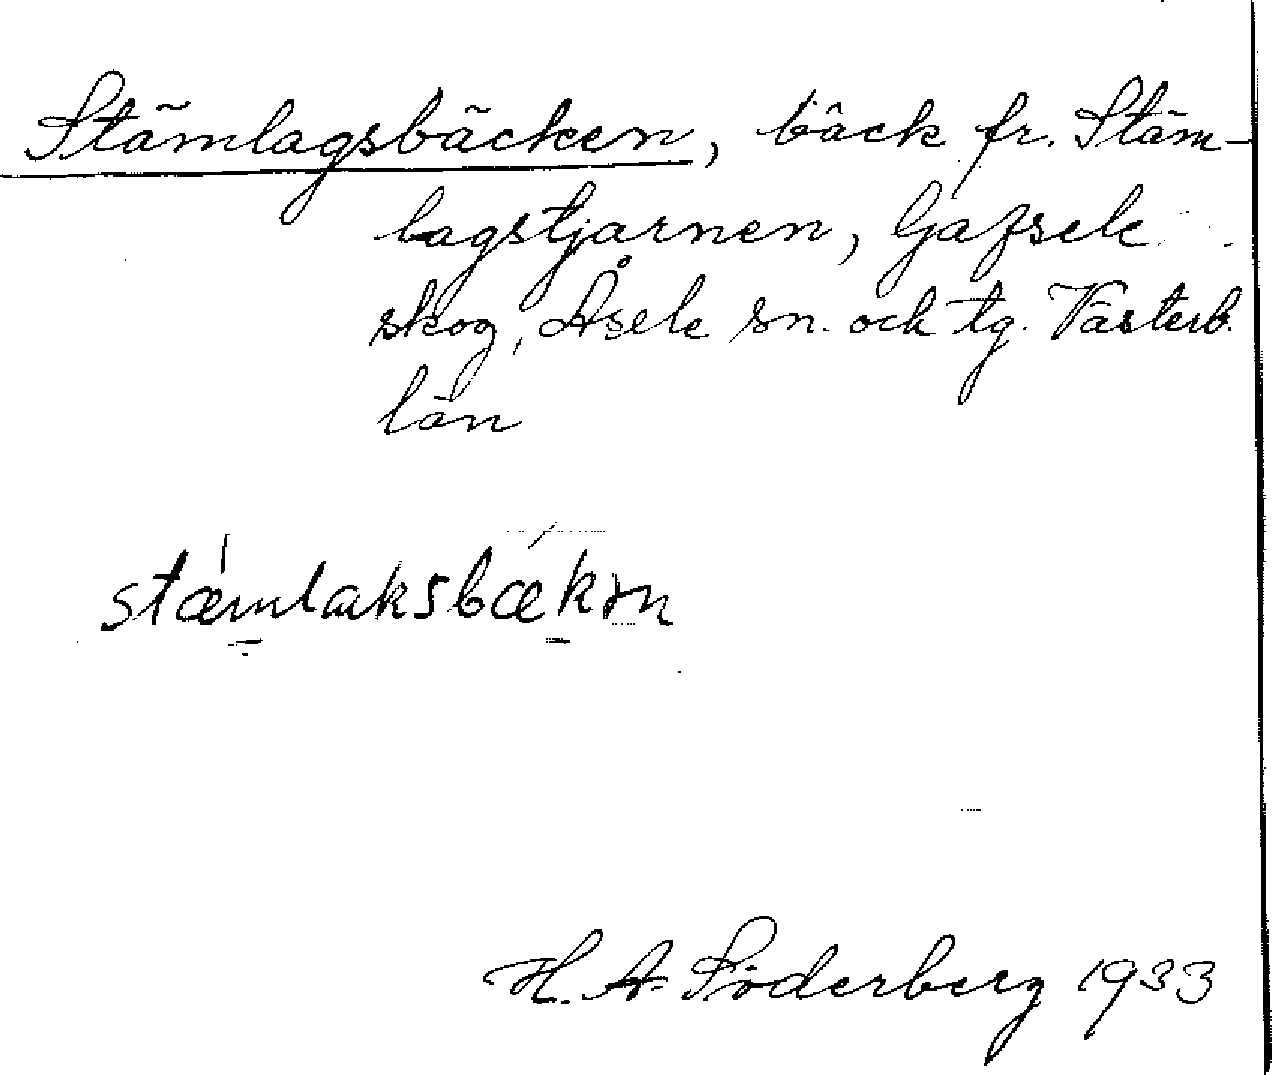 Stämlagsbäcken, bäck fr. Stäm-
lagstjärnen, Gafsele
skog, Åsele sn. och tg. Västerb.
län
stæmlaksbækən
H. A. Söderberg 1933